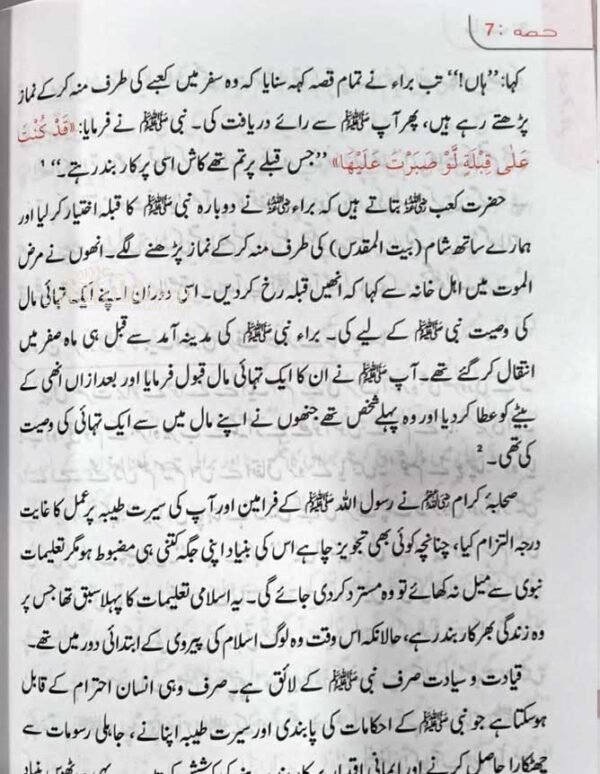 حصہ : 7
کہا: ’’ہاں!‘‘ تب براء نے تمام قصہ کہہ سنایا کہ وہ سفر میں کعبے کی طرف منہ کر کے نماز
پڑھتے رہے ہیں، پھر آپ ﷺ سے رائے دریافت کی۔ نبی ﷺ نے فرمایا: «قَدْ کُنْتَ
عَلٰی قِبْلَةٍ لَّوْ صَبَرْتَ عَلَیْهَا» ’’جس قبلے پر تم تھے کاش اسی پر کاربند رہتے۔‘‘ ¹
حضرت کعب رضی اللہ عنہ بتاتے ہیں کہ براء رضی اللہ عنہ نے دوبارہ نبی ﷺ کا قبلہ اختیار کر لیا اور
ہمارے ساتھ شام (بیت المقدس) کی طرف منہ کر کے نماز پڑھنے لگے۔ انھوں نے مرض
الموت میں اہل خانہ سے کہا کہ انھیں قبلہ رخ کر دیں۔ اسی دوران اپنے ایک تہائی مال
کی وصیت نبی ﷺ کے لیے کی۔ براء نبی ﷺ کی مدینہ آمد سے قبل ہی ماہ صفر میں
انتقال کر گئے تھے۔ آپ ﷺ نے ان کا ایک تہائی مال قبول فرمایا اور بعد ازاں انھی کے
بیٹے کو عطا کر دیا اور وہ پہلے شخص تھے جنھوں نے اپنے مال میں سے ایک تہائی کی وصیت
کی تھی۔ ²
صحابۂ کرام رضی اللہ عنہم نے رسول اللہ ﷺ کے فرامین اور آپ کی سیرت طیبہ پر عمل کا غایت
درجہ التزام کیا، چنانچہ کوئی بھی تجویز چاہے اس کی بنیاد اپنی جگہ کتنی ہی مضبوط ہو مگر تعلیمات
نبوی سے میل نہ کھائے تو وہ مسترد کر دی جائے گی۔ یہ اسلامی تعلیمات کا پہلا سبق تھا جس پر
وہ زندگی بھر کاربند رہے، حالانکہ اس وقت وہ لوگ اسلام کی پیروی کے ابتدائی دور میں تھے۔
قیادت و سیادت صرف نبی ﷺ کے لائق ہے۔ صرف وہی انسان احترام کے قابل
ہو سکتا ہے جو نبی ﷺ کے احکامات کی پابندی اور سیرت طیبہ اپنانے، جاہلی رسومات سے
چھٹکارا حاصل کرنے اور ایمانی اقدار پر کاربند